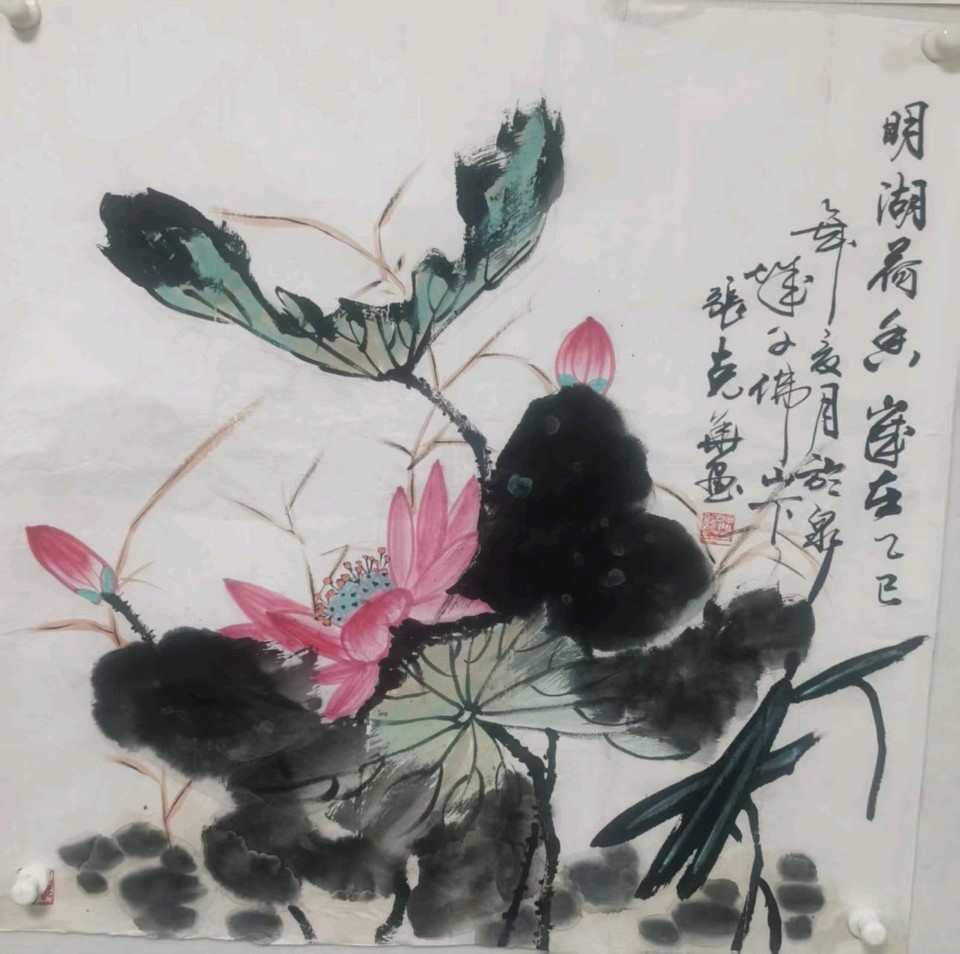 明湖荷香 岁在乙巳
年夏月於泉
城千佛山下
张克华画